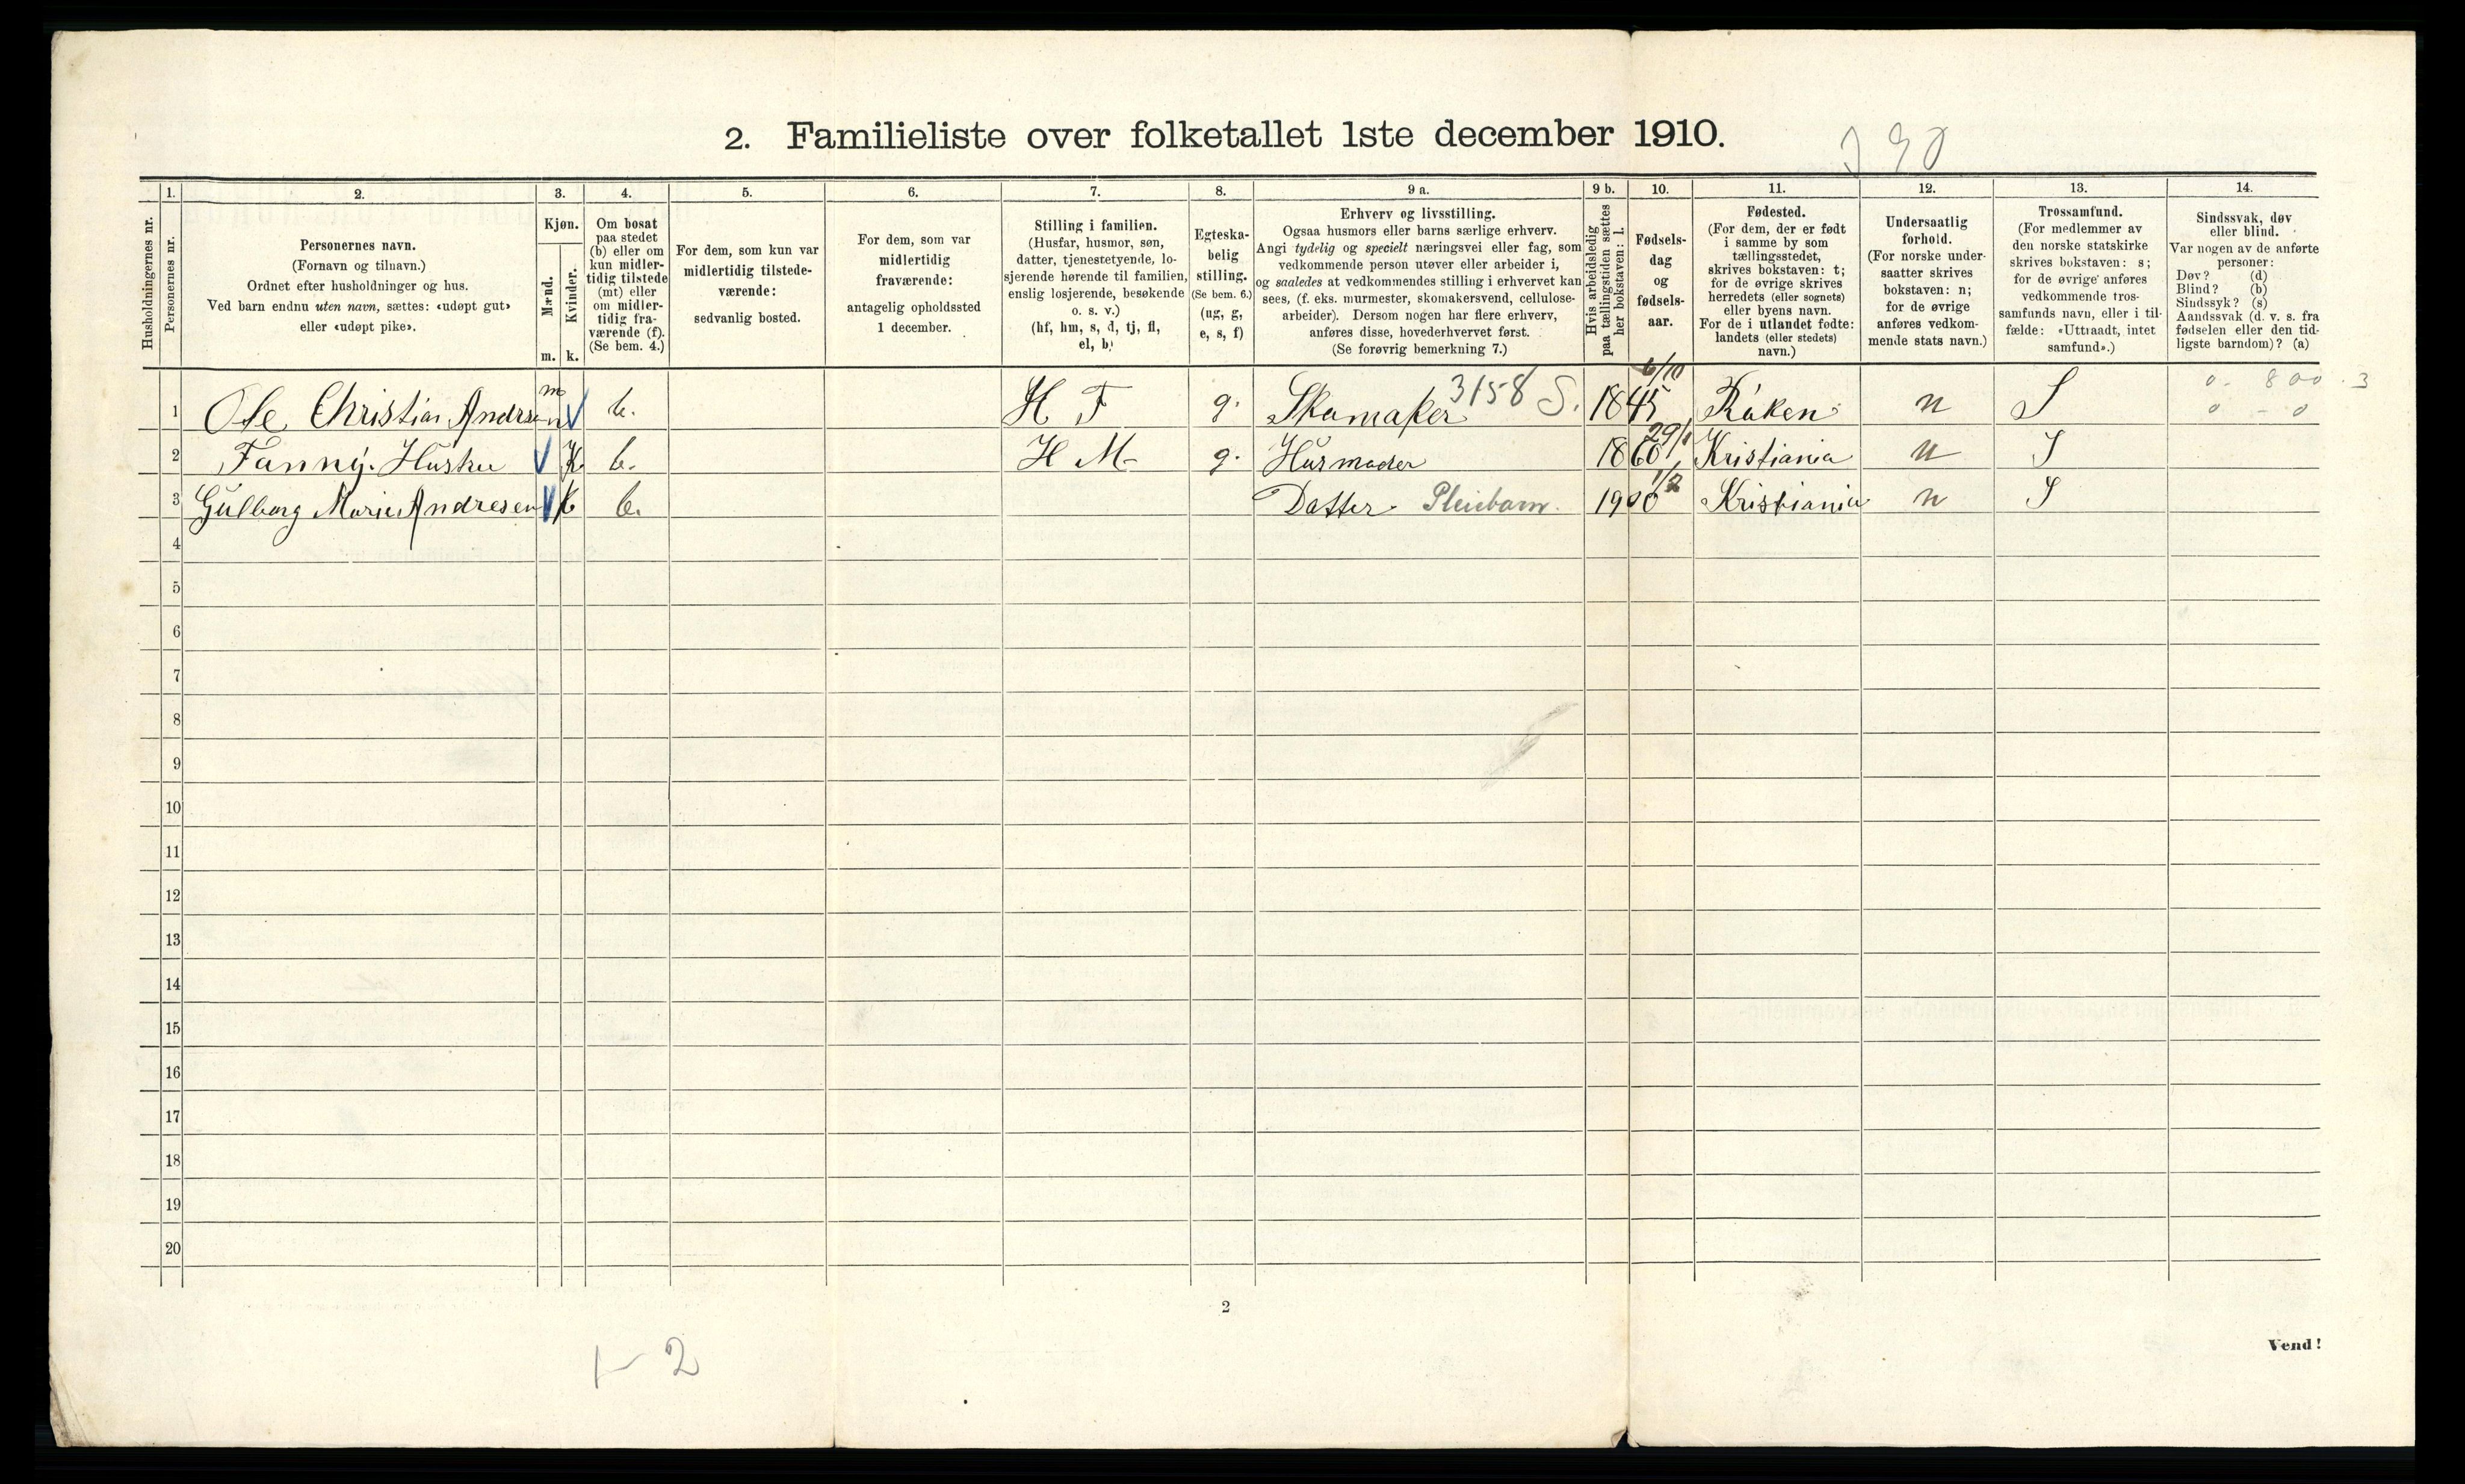 2. Familieliste over folketallet 1ste december 1910.
390
1. 2. 3. 4. 5. 6. 7. 8. 9 a. 9 b. 10. 11. 12. 13. 14.
Husholdningernes nr.
Personernes nr.
Personernes navn.
(Fornavn og tilnavn.)
Ordnet efter husholdninger og hus.
Ved barn endnu uten navn, sættes: «udøpt gut»
eller «udøpt pike».
Kjøn.
Mænd.
Kvinder.
m. k.
Om bosat
paa stedet
(b) eller om
kun midler-
tidig tilstede
(mt) eller
om midler-
tidig fra-
værende (f).
(Se bem. 4.)
For dem, som kun var
midlertidig tilstede-
værende:
sedvanlig bosted.
For dem, som var
midlertidig
fraværende:
antagelig opholdssted
1 december.
Stilling i familien.
(Husfar, husmor, søn,
datter, tjenestetyende, lo-
sjerende hørende til familien,
enslig losjerende, besøkende
o. s. v.)
(hf, hm, s, d, tj, fl,
el, b)
Egteska-
belig
stilling.
(Se bem. 6.)
(ug, g,
e, s, f)
Erhverv og livsstilling.
Ogsaa husmors eller barns særlige erhverv.
Angi tydelig og specielt næringsvei eller fag, som
vedkommende person utøver eller arbeider i,
og saaledes at vedkommendes stilling i erhvervet kan
sees, (f. eks. murmester, skomakersvend, cellulose-
arbeider). Dersom nogen har flere erhverv,
anføres disse, hovederhvervet først.
(Se forøvrig bemerkning 7.)
Hvis arbeidsledig
paa tællingstiden sættes
her bokstaven: l.
Fødsels-
dag
og
fødsels-
aar.
Fødested.
(For dem, der er født
i samme by som
tællingsstedet,
skrives bokstaven: t;
for de øvrige skrives
herredets (eller sognets)
eller byens navn.
For de i utlandet fødte:
landets (eller stedets)
navn.)
Undersaatlig
forhold.
(For norske under-
saatter skrives
bokstaven: n;
for de øvrige
anføres vedkom-
mende stats navn.)
Trossamfund.
(For medlemmer av
den norske statskirke
skrives bokstaven: s;
for de øvrige anføres
vedkommende tros-
samfunds navn, eller i til-
fælde: «Uttraadt, intet
samfund».)
Sindssvak, døv
eller blind.
Var nogen av de anførte
personer:
Døv? (d)
Blind? (b)
Sindssyk? (s)
Aandssvak (d. v. s. fra
fødselen eller den tid-
ligste barndom)? (a)
1 Ole Christian Andresen m b. H F g. Skomaker 3158 S. 6/10 1845 Röken n S 0. 800. 3
0 - 0
2 Fanny. Hustru K b. H M g. Husmoder 29/1 1860 Kristiania n S
3 Gulborg Marie Andresen K b. Datter Pleiebarn. 1900 Kristiania n S
4
5
6
7
8
9
10
11
12
13
14
15
16
17
18
19
20
2
Vend!
1 - 2